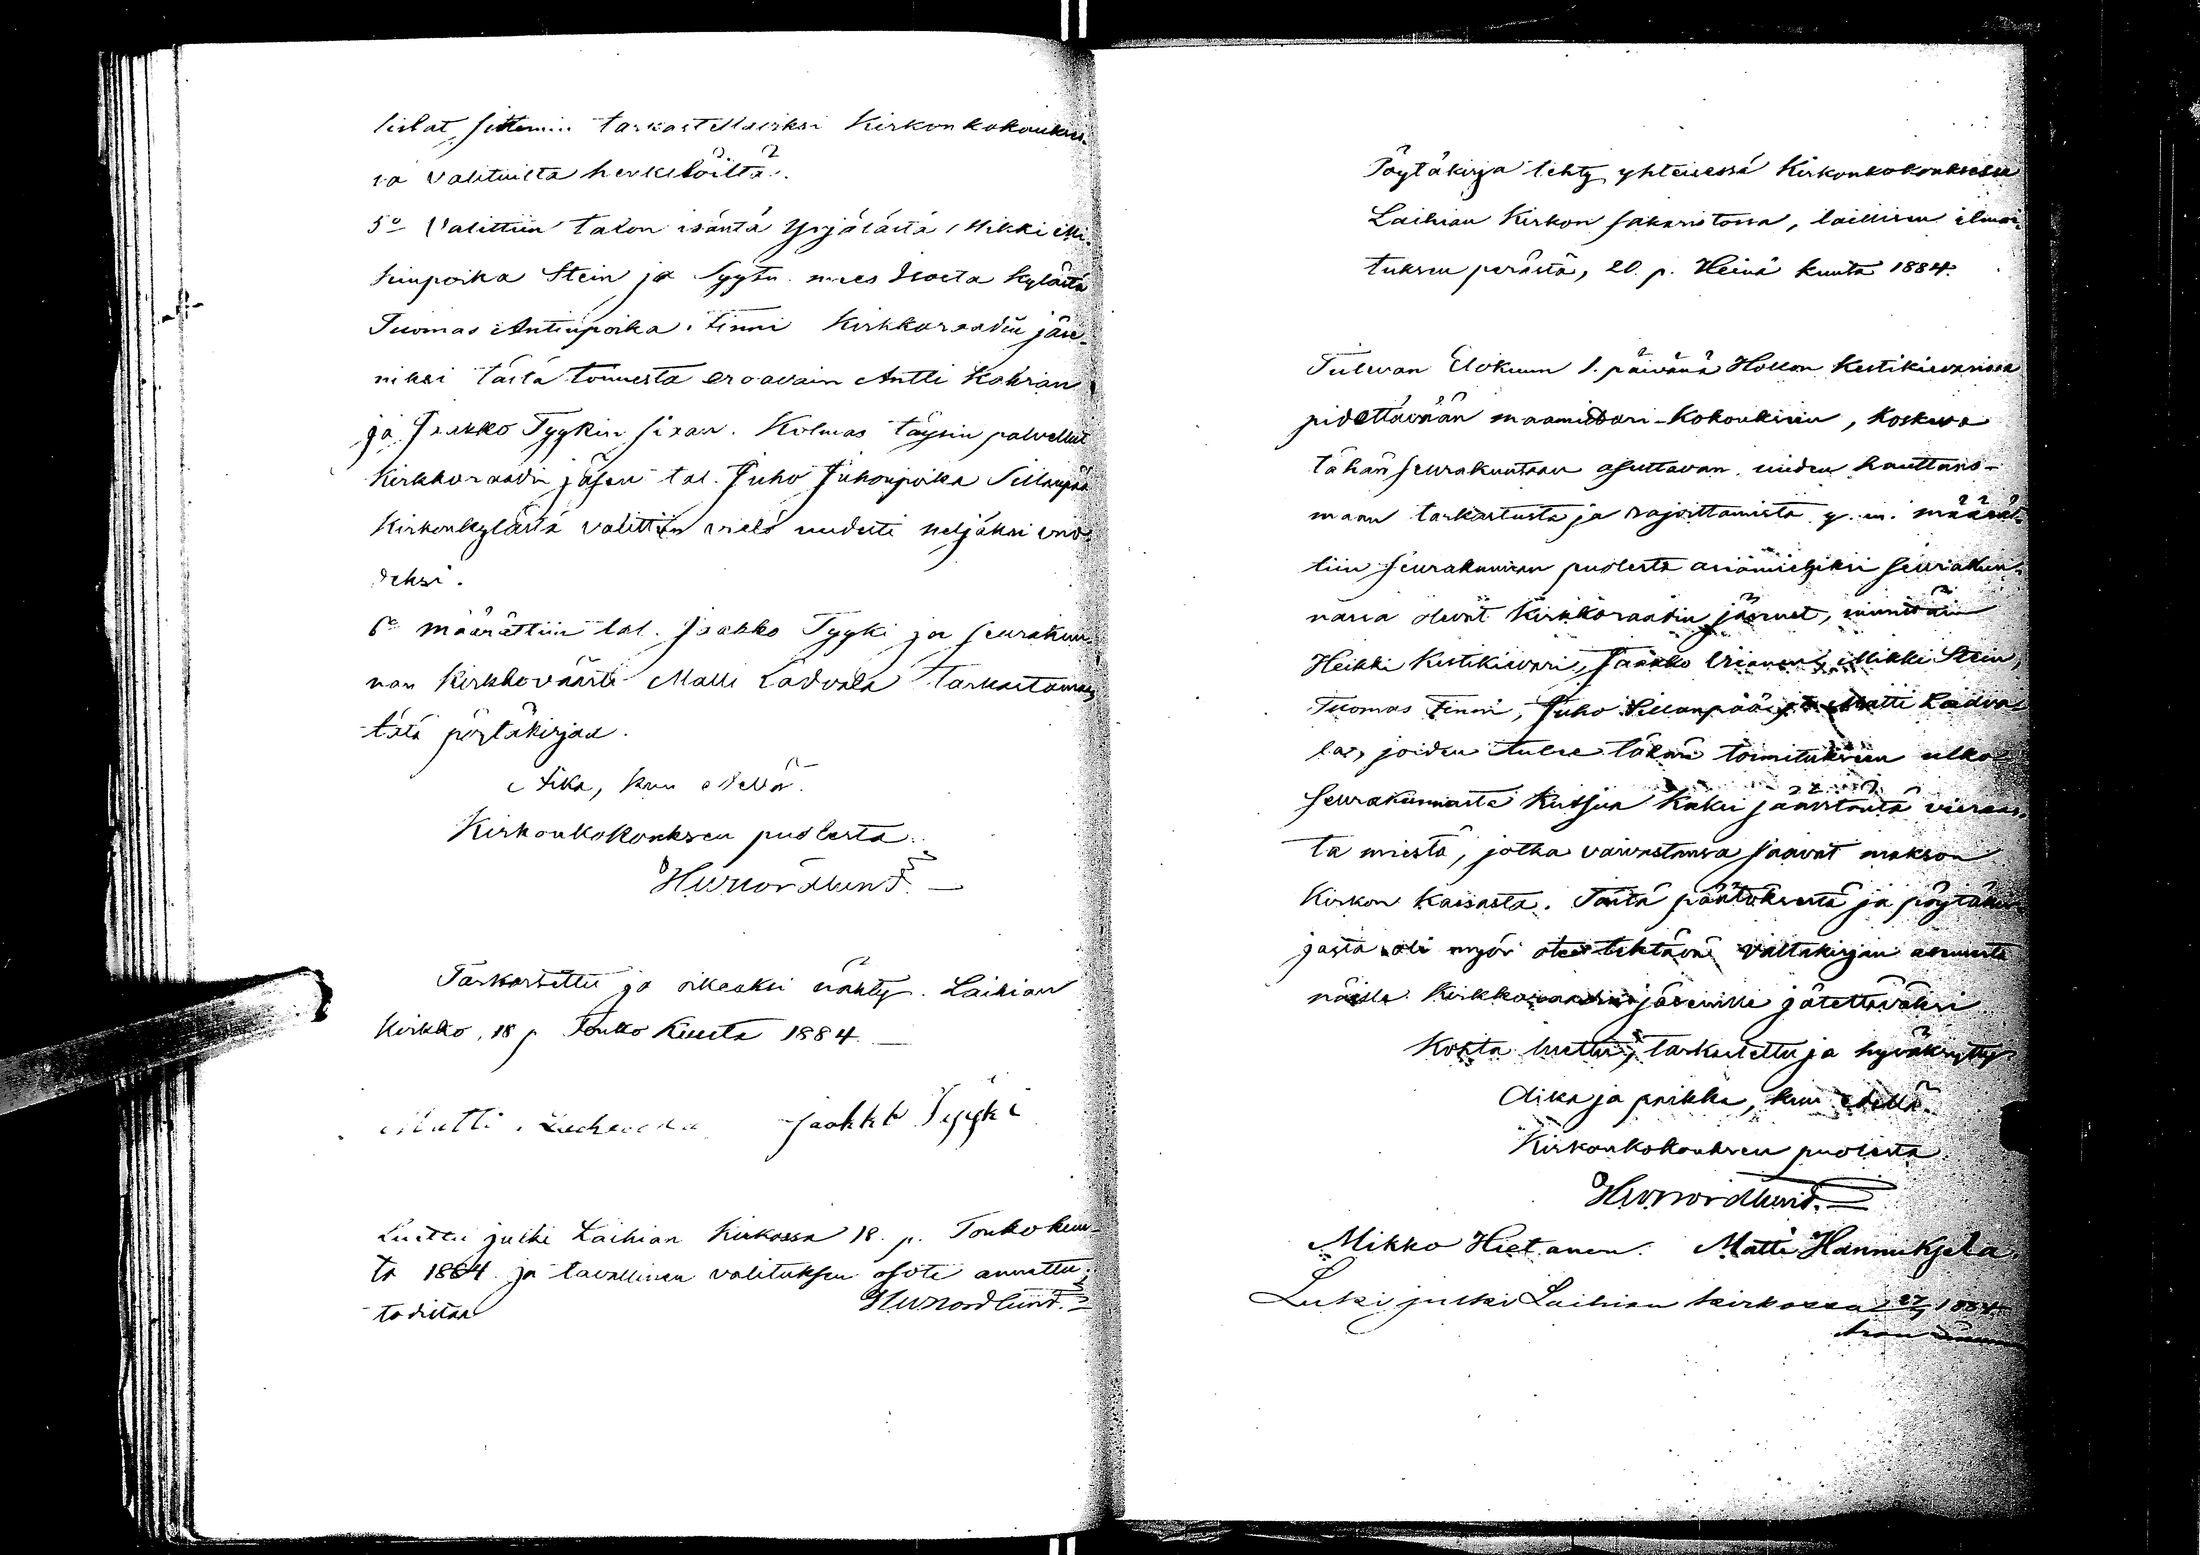 listat, sittemin tarkastettaviksi Kirkonkokoukses-
sa valituilta henkilöiltä.
5o Valittiin talon isäntä Yrjälästä Mikki Mi-
kinpoika Stein ja Syytn. mies Isosta kylästä
Tuomas Antinpoika Finni Kirkkoraadin jäse-
niksi tästä toimesta eroavain Antti Kohrian
ja Jaakko Tyykin sijaan. Kolmas täysin palvellut
Kirkkoraadin jäsen tal. Juho Juhonpoika Sillanpää
Kirkonkylästä valittiin vielä uudesti neljäksi vuo-
deksi.
6o määrättiin tal. Jaakko Tyyki ja seurakun-
nan Kirkkoväärti Matti Ladvala tarkastamaan
tätä pöytäkirjaa.
Aika, kuu edellä.
Kirkonkokouksen puolesta:
HWNordlund.
Tarkastettu ja oikeaksi nähty. Laihian
Kirkko, 18 p Touko kuuta 1884
Matti Jaakko Tyyki
Luettu julki Laihian Kirkossa 18. p. Toukokuu-
ta 1884 ja tavallinen valituksen osote annettu;
todistaa HWNordlund.
Pöytäkirja tehty yhteisessä Kirkonkokouksessa
Laihian Kirkon sakaristossa, laillisen ilmoi-
tuksen perästä, 20. p. Heinä kuuta 1884.
Tulevan Elokuun 1. päivänä Hollon Kestikievarissa
pidettävään maamittari-Kokoukseen, koskeva
tähän seurakuntaan asuttavan uuden hauttaus-
maan tarkastusta ja rajoittamista y. m. määrät-
tiin seurakunnan puolesta asiamiehiksi seurakun-
nassa olevat Kirkkoraadin jäsenet, nimittäin
Heikki Kestikievari, Jaakko Mikki Stein,
Tuomas Finni, Juho Sillanpää ja Matti Ladva-
la, joiden tulee tähän toimitukseen ulko
seurakunnasta kutsua kaksi jäävitöntä vieras-
ta miestä, jotka vaivastansa saavat makson
Kirkon Kassasta. Tästä päätöksestä ja pöytäkir-
jasta oli myös otes tehtävä valtakirjan asemesta
näille Kirkkoraadin jäsenille jätettäväksi
Kohta luettu, tarkastettu ja hyväksytty
Aika ja paikka, kuu edellä.
Kirkonkokouksen puolesta
HWNordlund.
Mikko Hietanen. Matti Hannuksela.
Luki julki Laihian kirkossa 27/7 1884